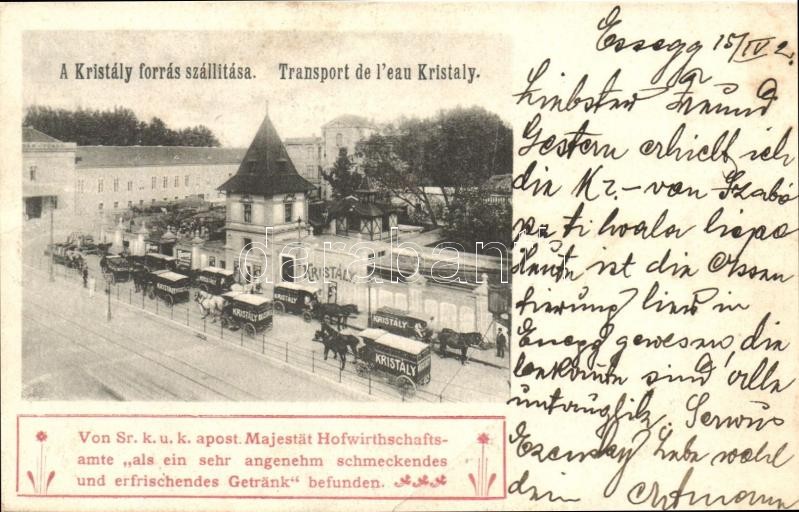 A Kristály forrás szállitása. Transport de l'eau Kristaly.
KRISTÁLY
KRISTÁLY
KRISTÁLY
KRISTÁLY
KRISTÁLY
KRISTÁLY
darabanth
Von Sr. k. u. k. apost. Majestät Hofwirthschafts-
amte „als ein sehr angenehm schmeckendes
und erfrischendes Getränk“ befunden.
Essegg 15/IV 2.
Liebster Freund
Gestern erhielt ich
die Kr.- von Szabó
hvala liepa
Heute ist die Assen
tierung hier in
Essegg gewesen, die
sind alle
untauglich. Servus
Lebe wohl
dein